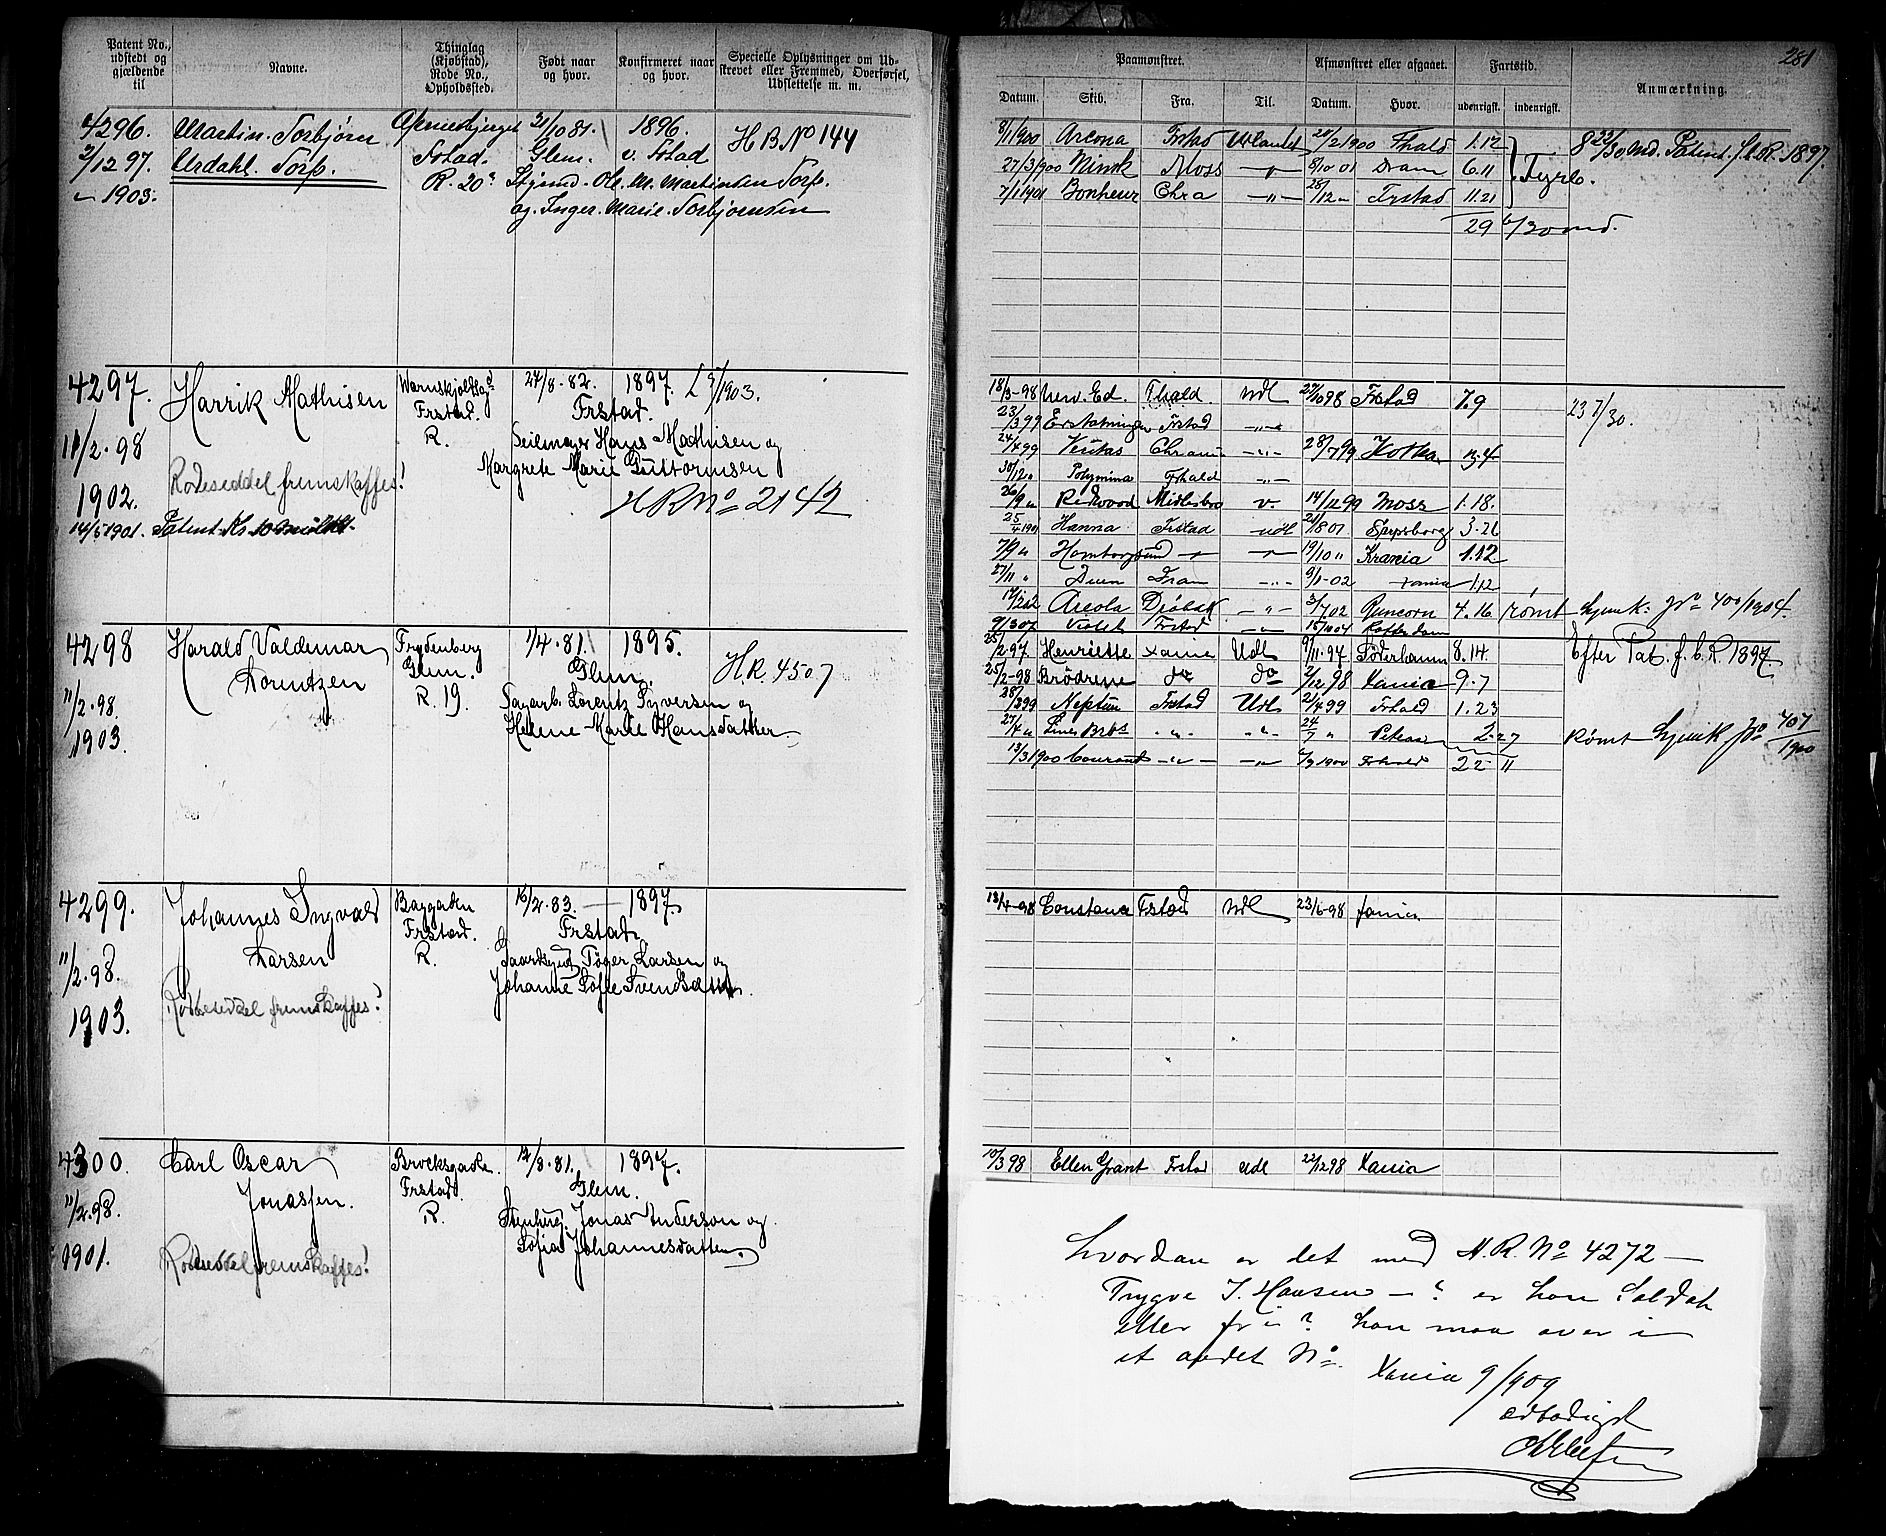 Patent No., udstedt og gjældende til
Navne.
Thinglag (Kjøbstad), Rode No., Opholdssted.
Født naar og hvor.
Konfirmeret naar og hvor.
Specielle Oplysninger om Udstrevet eller Fremmed, Overførsel, Udslettelse m. m.
4296.
2/12 97.
" 1903.
Martin Torbjørn
Urdahl Torp.
Frstad.
R. 20
31/10 81.
Glem.
1896.
v. Frstad
Ole M. Martinsen Torp.
og Inger Marie Torbjørnsen
H B No 144
4297.
11/2 98
1902.
Harrik Mathisen
Rodeseddel fremskaffes!
14/5 1901. Patent
Frstad.
R.
24/8 82.
Frstad.
1897.
Seilmager Hans Mathisen og
Margrete Marie Guttormsen
H R No 2142
4298
11/2 98.
1903.
Harald Valdemar
Lorentzen
Frydenberg
Glem.
R. 19.
1/4 81.
Glem.
1895.
Sagarb. Lorentz Syversen og
Helene Marie Hansdatter
H.R. 4507
4299.
11/2 98.
1903.
Johannes Ingvald
Larsen
Rodeseddel fremskaffes!
Baggaden
Frstad.
R.
16/2 83.
1897.
Frstad.
Tøger Larsen og
Johanne Sofie
4300.
11/2 98.
1901.
Carl Oscar
Jonassen.
Rodeseddel fremskaffes!
Brocksgade.
Frstad.
R.
12/8 81.
Glem.
1897.
Stenhug. Jonas Anderson og
Sofia Johannesdatter
281
Paamønstret.
Afmønstret eller afgaaet.
Fartstid.
Anmærkning.
Datum.
Skib.
Fra.
Til.
Datum.
Hvor.
udenrigsk.
indenrigsk.
8/1 1900 Arcona Frstad Udlandet 20/2 1900 Fhald 1.12
8 22/30 Md. Patent f. C. R. 1897.
27/3 1900 Moss 8/10 01 Dram 6.11
Fyrb.
7/1 1901 Bonheur Chra 28/12 Frstad 11.21
29 6/30 md.
18/3 98 Fhald Udl 27/10 98 Frstad 7.9
23 7/30.
23/3 99 Frstad
24/4 99 Veritas Chrania 28/7 99 Kotka 3.4
30/12 Polymina Fhald
26/9 Redwood Midlesbro v. 14/12 99 Moss 1.18.
25/4 1901 Hanna Frstad udl 21/8 01 Sarpsborg 3.26
7/9 Homborgsund 19/10 Krania 1.12
27/11 Dram 9/1 02 Xania 1.12
Areola Drøbak 3/7 02 Runcorn 4.16 rømt 400/1904.
9/3 07 Violet Frstad Rotterdam
25/2 97 Henriette Xania Udl 9/11 97 Söderhamn 8.14.
Efter Pat. f. C. R. 1897
25/2 98 Brödrene do do 2/12 98 Xania 9.7
28/1 99 Neptun Frstad Udl 21/4 99 Frhald 1.23
27/4 24/7 2.27
Rømt 707/1900
13/3 1900 Courant 6/9 1900 Frhald 22 11
13/4 98 Constance Frstad Udl 23/6 98
10/3 98 Ellen Grant Frstad Udl 22/12 98 Xania
Hvordan er det med H.R. No 4272 —
Trygve J. Hansen — ? er han Soldat
eller fri? han maa over i
et andet No.
Xania 9/1 909
ærbødigst